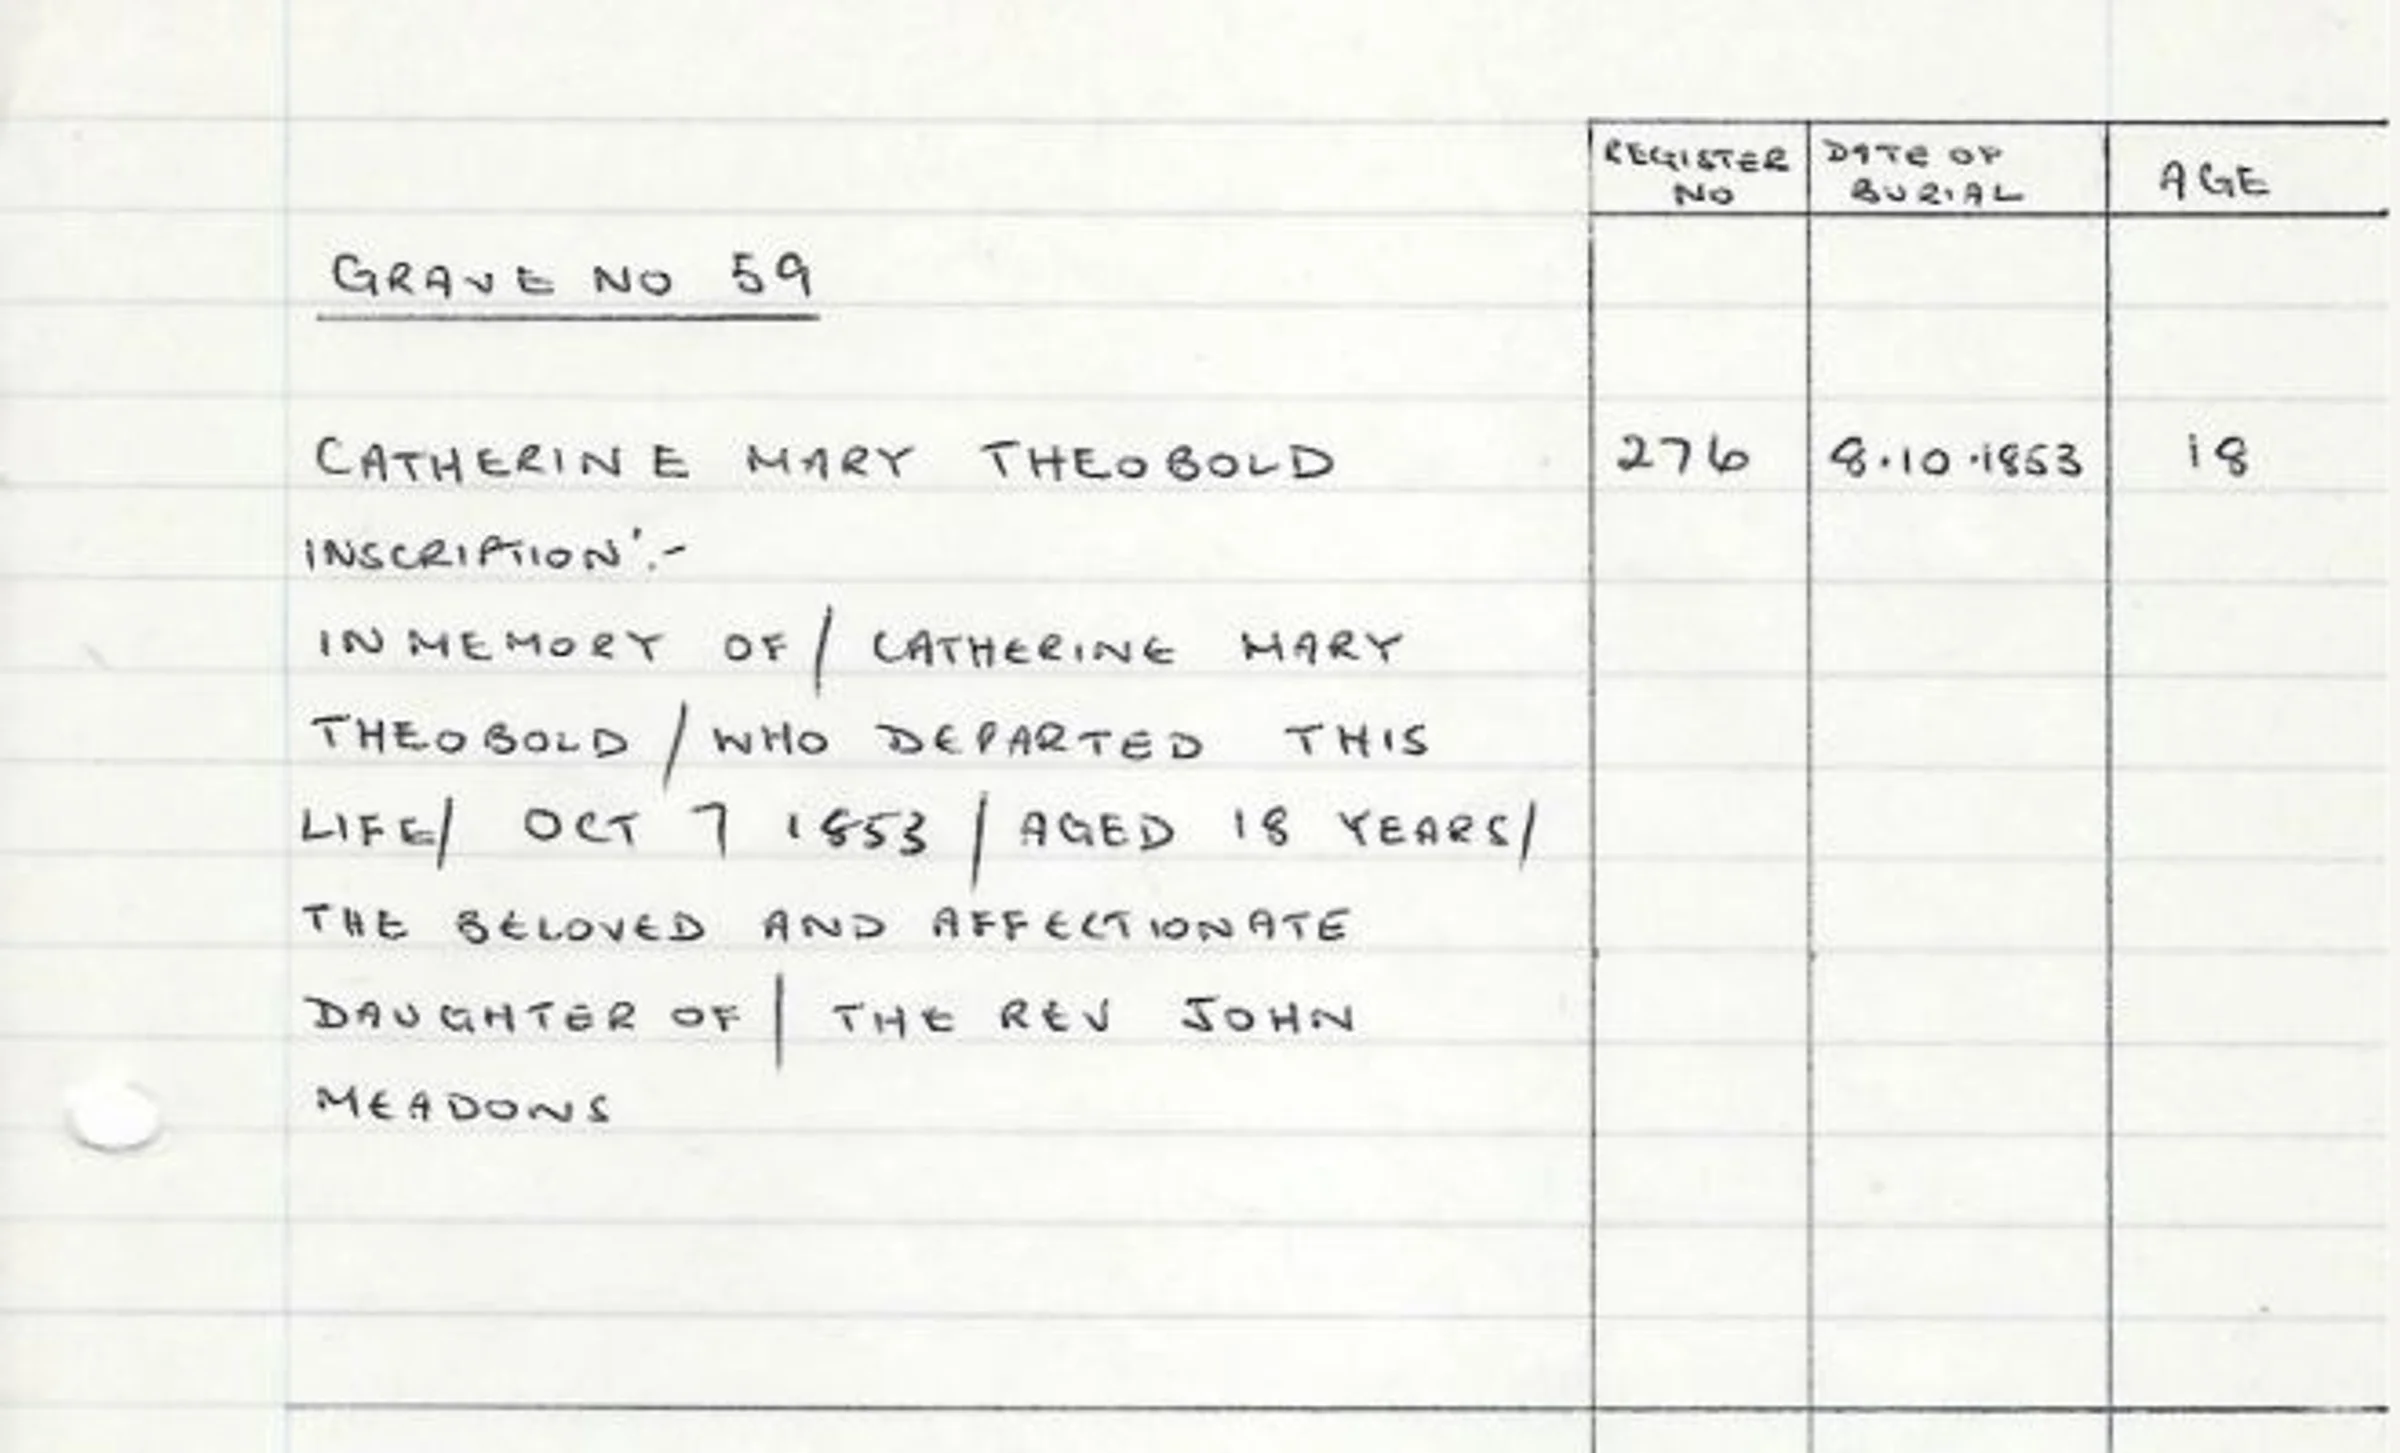 REGISTER NO DATE OF BURIAL AGE
GRAVE NO 59
CATHERINE MARY THEOBOLD 276 8.10.1853 18
INSCRIPTION:-
IN MEMORY OF / CATHERINE MARY
THEOBOLD / WHO DEPARTED THIS
LIFE / OCT 7 1853 / AGED 18 YEARS /
THE BELOVED AND AFFECTIONATE
DAUGHTER OF / THE REV JOHN
MEADONS